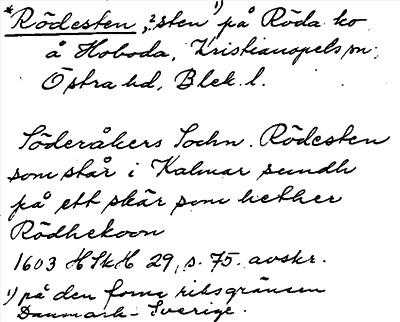 *Rödesten, ?sten 1) på Röda ko
å Hoboda, Kristianopels sn;
Östra hd, Blek. l.
Söderåkers Sochn. Rödesten
som står i Kalmar sundh
på ett skär som hether
Rödhekoon
1603 HSkH 29, s. 75. avskr.
1) på den forna riksgränsen
Danmark-Sverige.